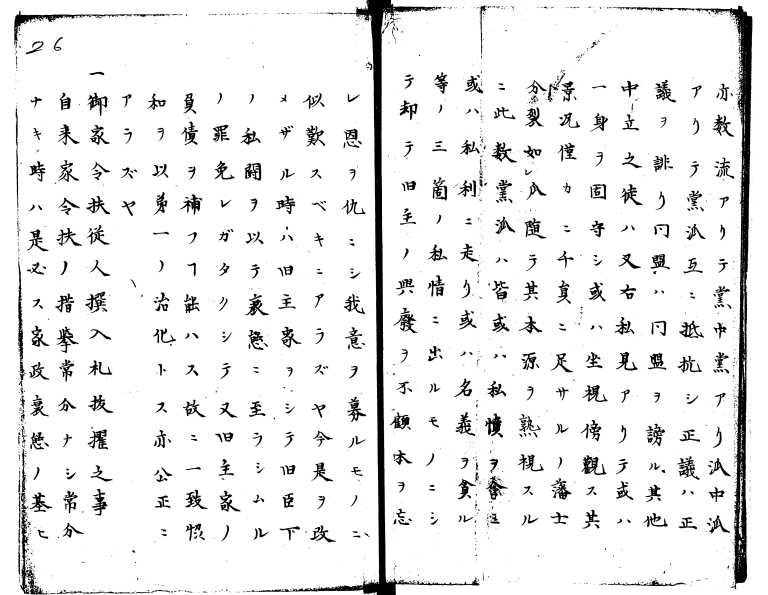 亦数流アリテ党中党アリ派中派
アリテ党派互ニ抵抗シ正議ハ正
議ヲ誹リ同盟ハ同盟ヲ謗ル其他
中立之徒ハ又右私見アリテ或ハ
一身ヲ固守シ或ハ坐視傍観ス其
景况僅カニ千員ニ足サルノ藩士
分裂如瓜随テ其本源ヲ熟視スル
ニ此数党派ハ皆或ハ私憤ヲ奮ヒ
或ハ私利ニ走リ或ハ名義ヲ貪ル
等ノ三箇ノ私情ニ出ルモノニシ
テ却テ旧主ノ興廃ヲ不顧本ヲ忘
26
レ恩ヲ仇ニシ我意ヲ募ルモノニ
似歎スベキニアラズヤ今是ヲ改
メザル時ハ旧主家ヲシテ旧臣下
ノ私闘ヲ以テ衰怠ニ至ラシムル
ノ罪免レガタクシテ又旧主家ノ
負債ヲ補フヿ能ハス故ニ一致
和ヲ以第一ノ治化トス亦公正ニ
アラズヤ
一御家令扶従人撰入札抜擢之事
自来家令扶ノ措挙常分ナシ常分
ナキ時ハ是必ス家政衰怠ノ基ヒ